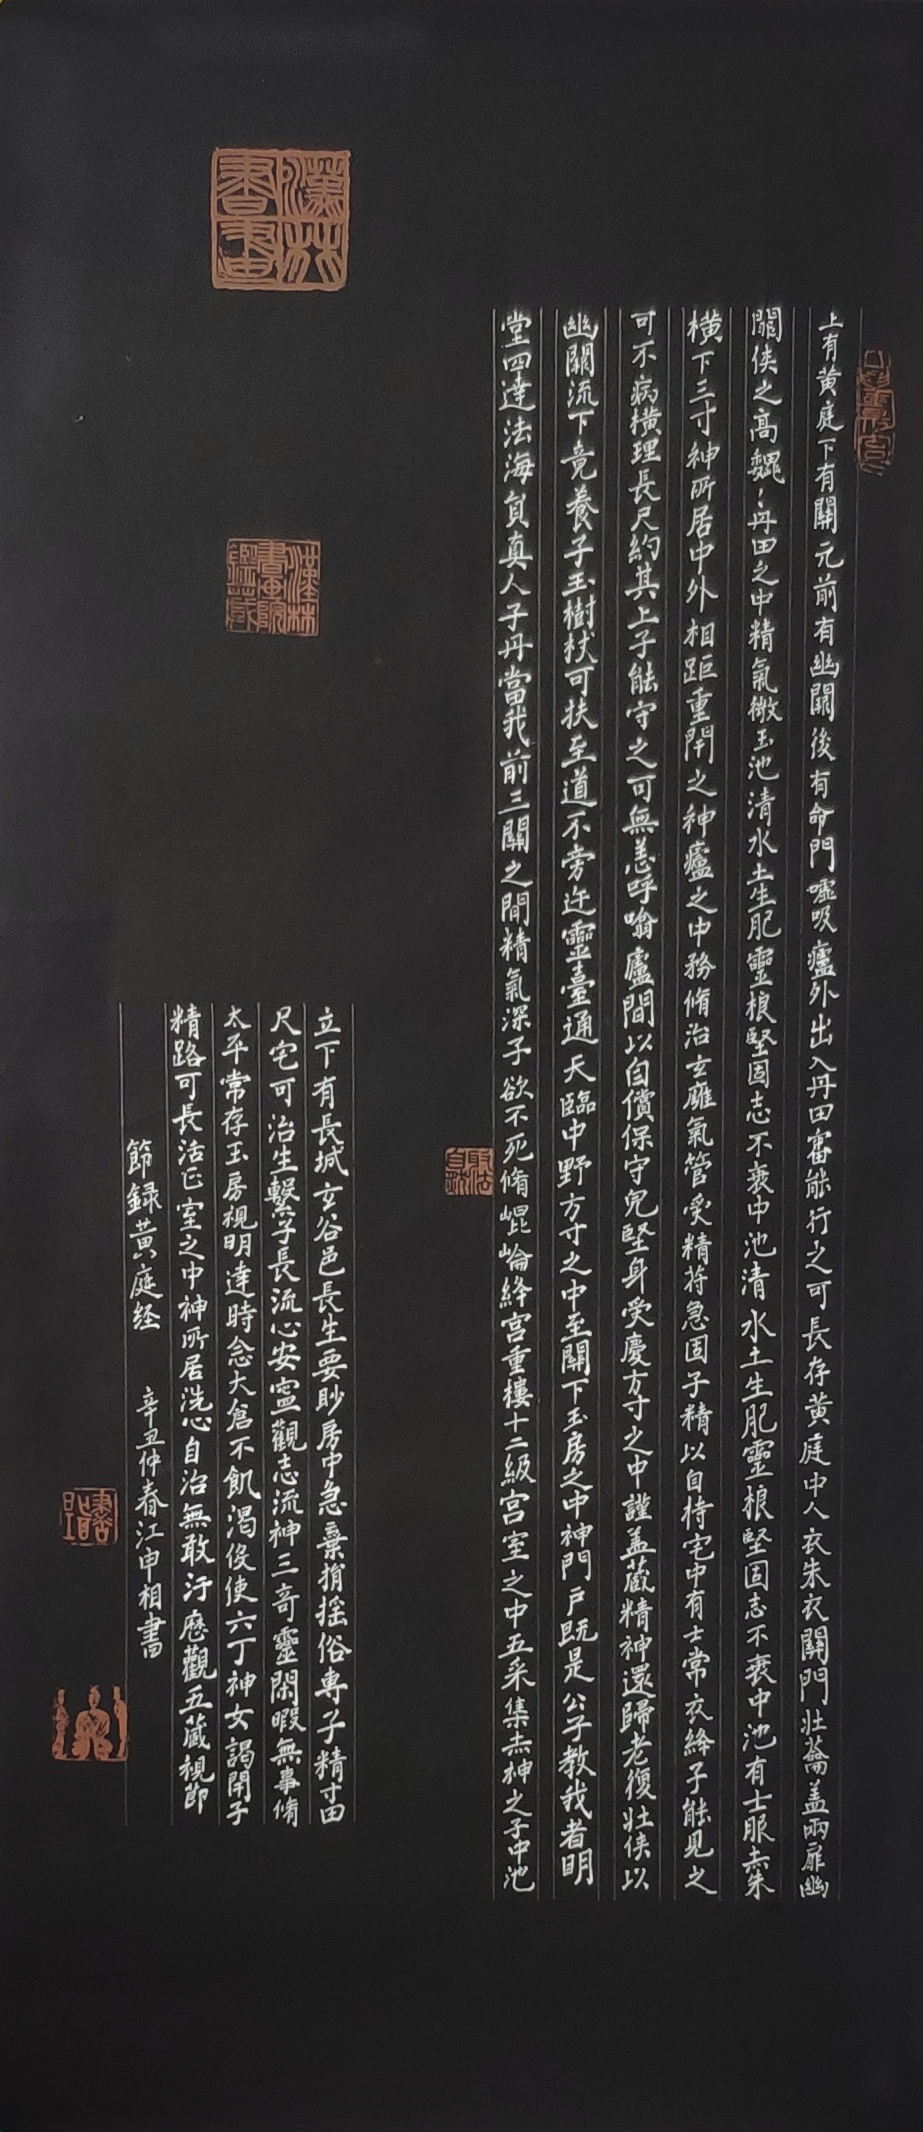 上有黄庭下有關元前有幽闕後有命門噓吸廬外出入丹田審能行之可長存黄庭中人衣朱衣關門壯蘥盖兩扉幽
闕俠之高魏々丹田之中精氣微玉池清水上生肥靈根堅固志不衰中池清水上生肥靈根堅固志不衰中池有士服赤朱
橫下三寸神所居中外相距重閇之神廬之中務脩治玄廱氣管受精苻急固子精以自持宅中有士常衣絳子能見之
可不病横理長尺約其上子能守之可無恙呼噏廬間以自償保守皃堅身受慶方寸之中謹盖藏精神還歸老復壯俠以
幽闕流下竟養子玉樹杖可扶至道不旁迕靈臺通天臨中野方寸之中至關下玉房之中神門户既是公子教我者明
堂四達法海負真人子丹當我前三關之間精氣深子欲不死脩崐崘絳宫重樓十二級宫室之中五采集赤神之子中池
立下有長城玄谷邑長生要眇房中急棄捐揺俗專子精寸田
尺宅可治生繫子長流心安寧觀志流神三奇靈閑暇無事脩
太平常存玉房視明達時念大倉不飢渴役使六丁神女謁閇子
精路可長活正室之中神所居洗心自治無敢汙歷觀五藏視節
節録黄庭经 辛丑仲春江申相書
漢林書畫
漢林書畫院鑑藏